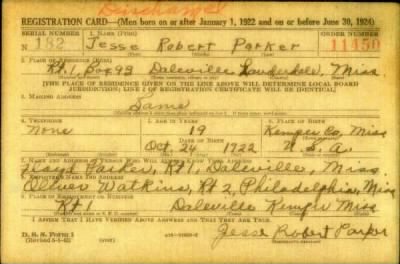 Discharged
REGISTRATION CARD—(Men born on or after January 1, 1922 and on or before June 30, 1924)
SERIAL NUMBER 1. NAME (Print) ORDER NUMBER
N 182 Jesse Robert Parker 11450
2. PLACE OF RESIDENCE (Print)
Rt. 1 Box 93 Daleville Lauderdale, Miss
[THE PLACE OF RESIDENCE GIVEN ON THE LINE ABOVE WILL DETERMINE LOCAL BOARD
JURISDICTION; LINE 2 OF REGISTRATION CERTIFICATE WILL BE IDENTICAL]
3. MAILING ADDRESS
Same
4. TELEPHONE 5. AGE IN YEARS 6. PLACE OF BIRTH
None 19 Kemper Co, Miss
DATE OF BIRTH
Oct. 24 1922 U.S.A.
7. NAME AND ADDRESS OF PERSON WHO WILL ALWAYS KNOW YOUR ADDRESS
Parker, Rt 1, Daleville, Miss.
8. EMPLOYER'S NAME AND ADDRESS
Oliver Watkins, Rt 2, Philadelphia, Miss
9. PLACE OF EMPLOYMENT OR BUSINESS
Rt 1 Daleville Kemper Miss
I AFFIRM THAT I HAVE VERIFIED ABOVE ANSWERS AND THAT THEY ARE TRUE.
D. S. S. Form 1
(over)
Jesse Robert Parker